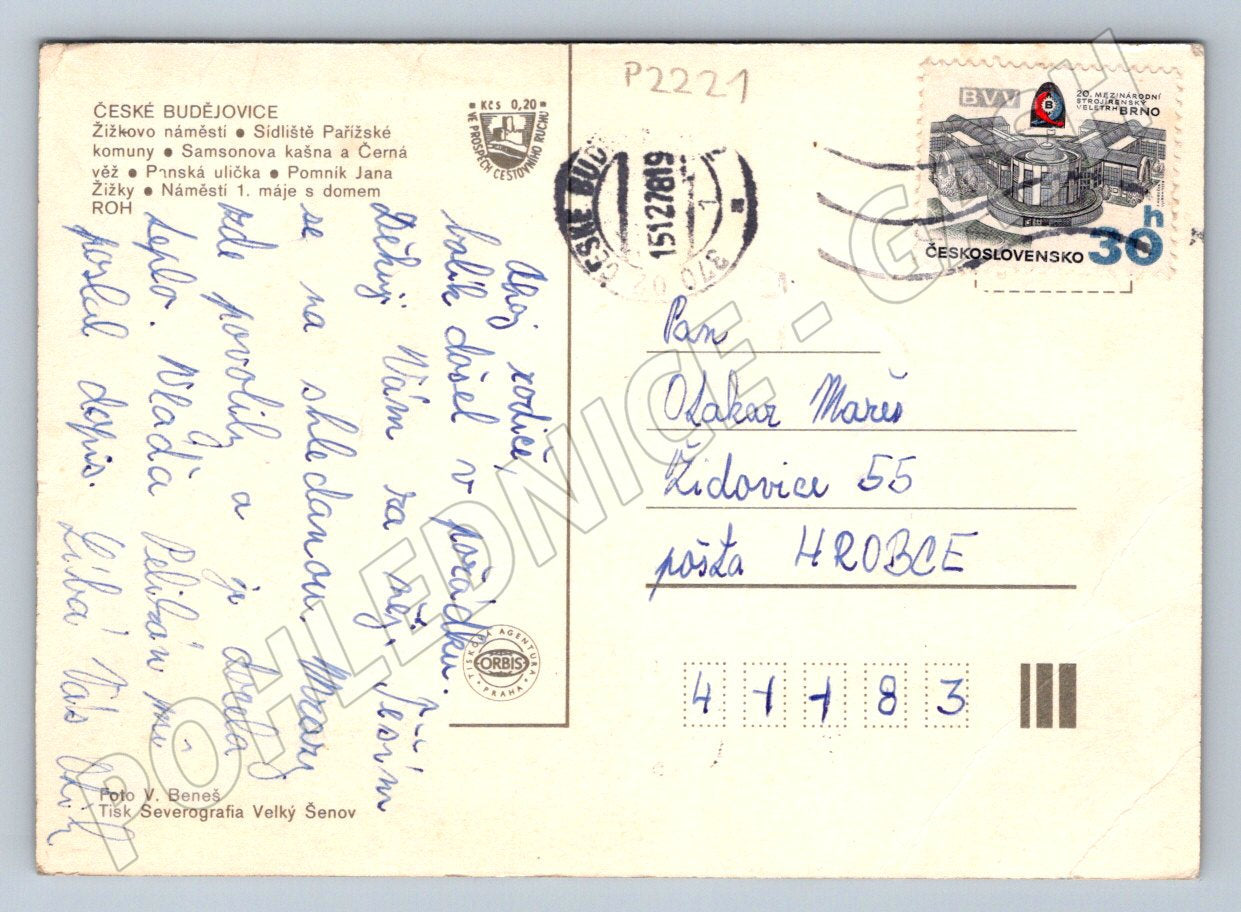 ČESKÉ BUDĚJOVICE
Žižkovo náměstí • Sídliště Pařížské
komuny • Samsonova kašna a Černá
věž • Panská ulička • Pomník Jana
Žižky • Náměstí 1. máje s domem
ROH
Kčs 0,20
VE PROSPĚCH CESTOVNÍHO RUCHU
P2221
ČESKÉ BUD
15127819
370 02
1
a
BVV
20. MEZINÁRODNÍ
STROJÍRENSKÝ
VELETRH BRNO
ČESKOSLOVENSKO 30 h
Ahoj rodiče,
balík došel v pořádku.
Děkuji Vám za něj. Těším
se na shledanou. Mrazy
zde povolily a je docela
teplo. Vlaďa Pelikán mi
poslal dopis. Líbá Vás
Pan
Otakar Mareš
Židovice 55
pošta HROBCE
411 83
TISKOVÁ AGENTURA
ORBIS
PRAHA
Foto V. Beneš
Tisk Severografia Velký Šenov
POHLEDNICE - GASH